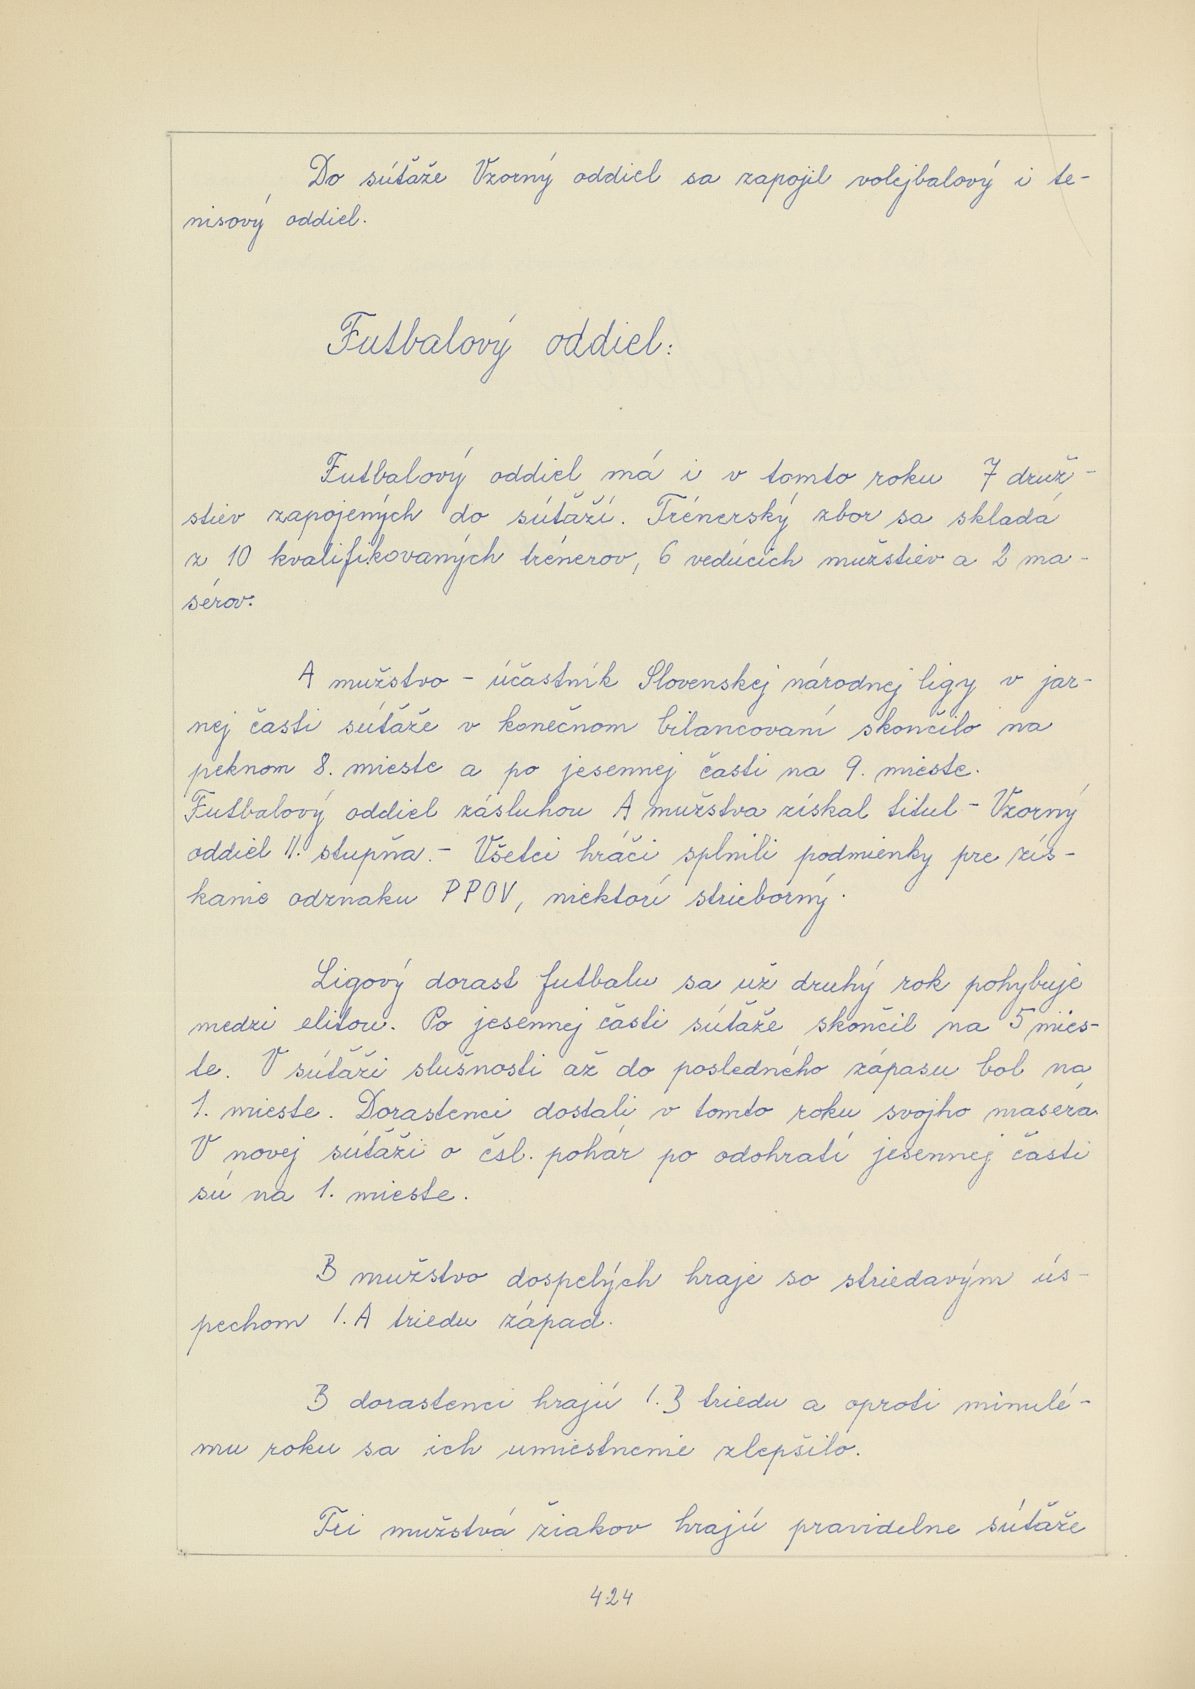 Do súťaže Vzorný oddiel sa zapojil volejbalový i te-
nisový oddiel.
Futbalový oddiel:
Futbalový oddiel má i v tomto roku 7 druž-
stiev zapojených do súťaží. Trénerský zbor sa skladá
z 10 kvalifikovaných trénerov, 6 vedúcich mužstiev a 2 ma-
sérov.
A mužstvo - účastník Slovenskej národnej ligy v jar-
nej časti súťaže v konečnom bilancovaní skončilo na
peknom 8. mieste a po jesennej časti na 9. mieste.
Futbalový oddiel zásluhou A mužstva získal titul - Vzorný
oddiel II. stupňa. - Všetci hráči splnili podmienky pre zís-
kanie odznaku PPOV, niektorí strieborný.
Ligový dorast futbalu sa už druhý rok pohybuje
medzi elitou. Po jesennej časti súťaže skončil na 5 mies-
te. V súťaži slušnosti až do posledného zápasu bol na
1. mieste. Dorastenci dostali v tomto roku svojho maséra.
V novej súťaži o čsl. pohár po odohratí jesennej časti
sú na 1. mieste.
B mužstvo dospelých hraje so striedavým ús-
pechom 1. A triedu západ.
B dorastenci hrajú 1. B triedu a oproti minulé-
mu roku sa ich umiestnenie zlepšilo.
Tri mužstvá žiakov hrajú pravidelne súťaže
424